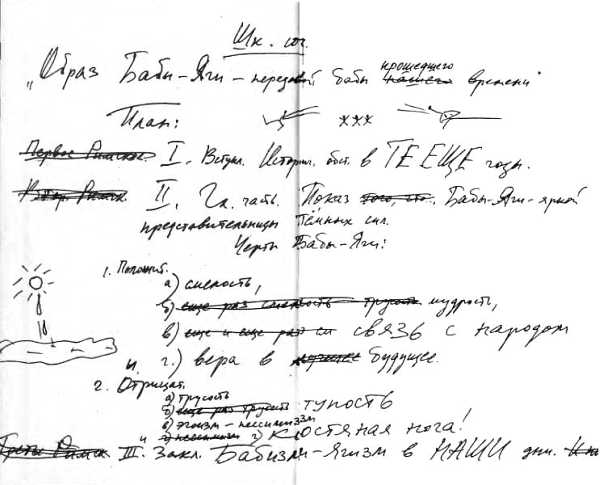 Шк. соч.
"Образ Бабы-Яги - передовой бабы нашего прошедшего времени"
План:
xxx
Первое Римск. I. Вступл. Историч. обст. в ТЕ ЕЩЕ годы.
Втор. Римск. II. Гл. часть. Показ того, что Бабы-Яги - яркой
представительницы тёмных сил.
Черты Бабы-Яги:
1. Положит.
а) смелость,
б) еще раз смелость трусость мудрость,
в) еще и еще раз см связь с народом
и г.) вера в будущее.
2. Отрицат.
а) трусость
б) еще раз трусость тупость
в) эгоизм - пессимизм
и г) костяная нога!
Третье Римск. III. Закл. Бабизм-Ягизм в НАШИ дни.